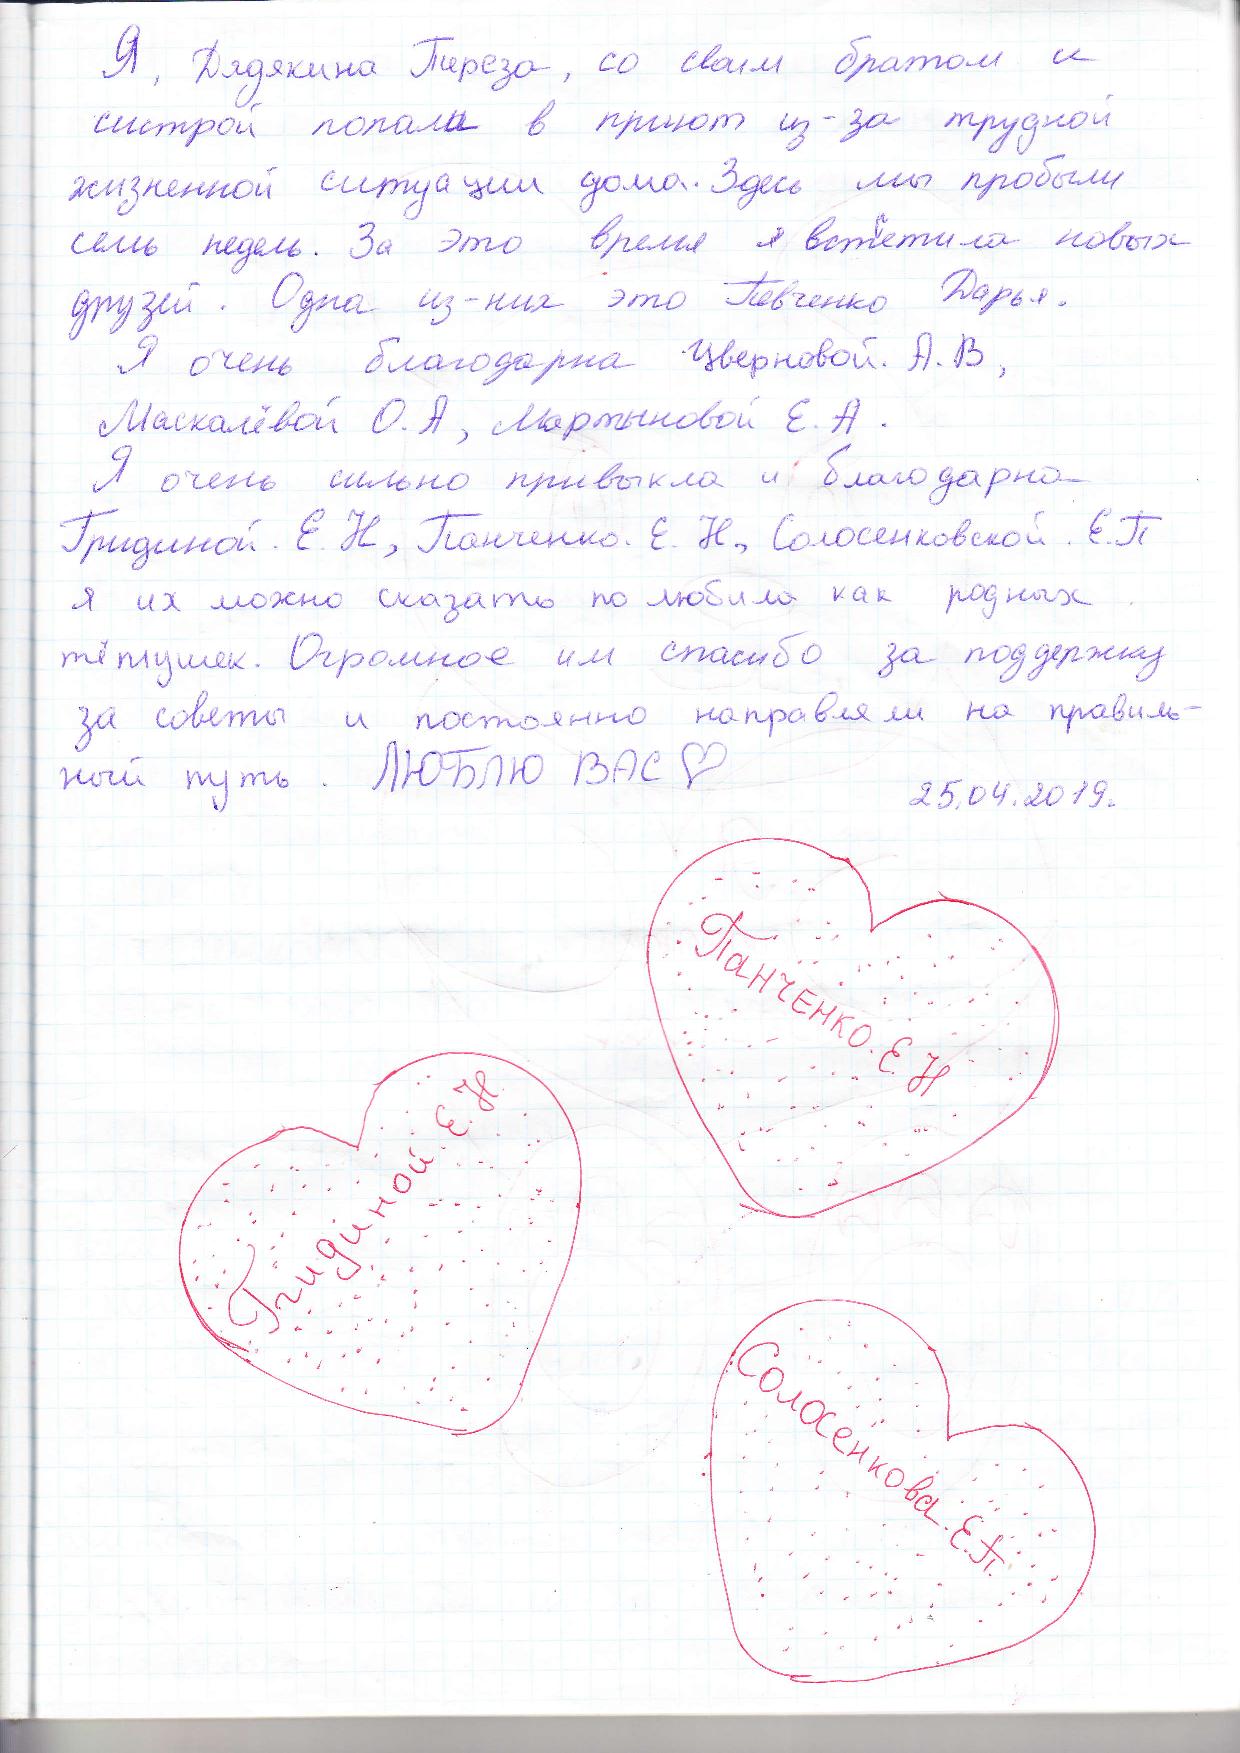 Я, Дядякина Тереза, со своим братом и
систрой попали в приют из-за трудной
жизненной ситуации дома. Здесь мы пробыли
семь недель. За это время я встетила новых
друзей. Одна из-них это Певченко Дарья.
Я очень благодарна Цверновой. А.В,
Маскалёвой О.А, Мартыновой Е.А.
Я очень сильно привыкла и благодарна
Гридиной. Е.Н, Панченко. Е.Н, Солосенковской. Е.П
я их можно сказать по любила как родных
тётушек. Огромное им спасибо за поддержку
за советы и постоянно направляли на правиль-
ный путь. ЛЮБЛЮ ВАС ♡
25.04.2019.
Панченко. Е.Н
Гридиной Е.Н.
Солосенкова. Е.П.